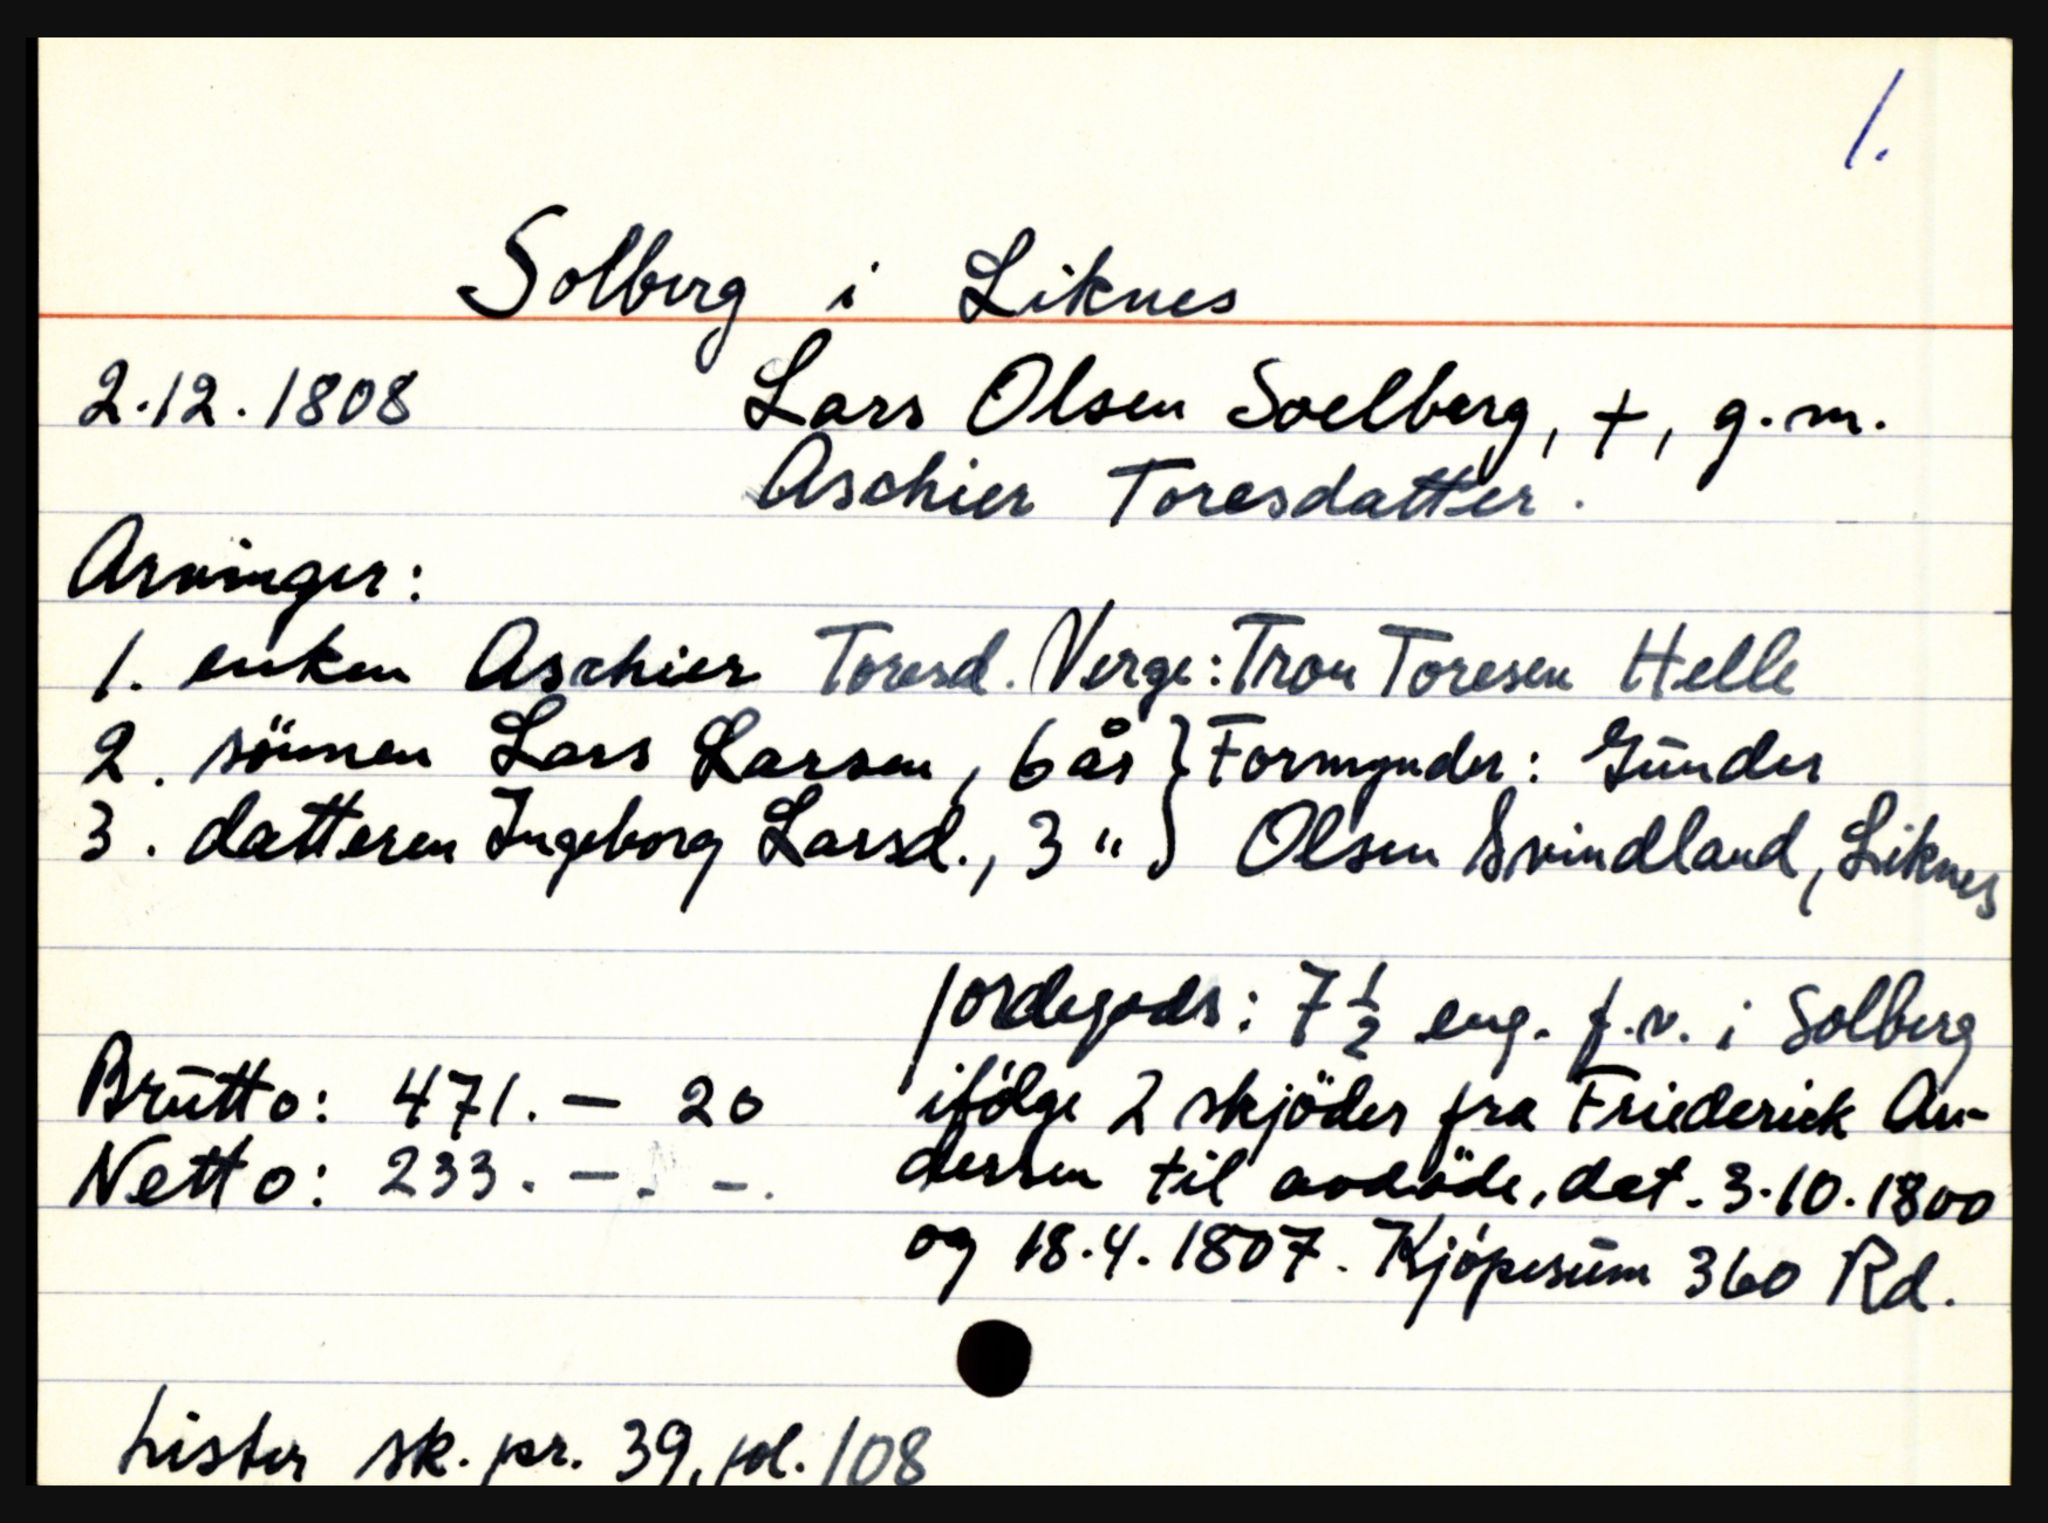 1.
Solberg i Liknes
2.12.1808 Lars Olsen Soelberg, +, g.m.
Aschier Toresdatter.
Arvinger:
1. enken Aschier Toresd. Verge: Tron Toresen Helle
2. sönnen Lars Larsen, 6 år } Formynder: Gūnder
3. datteren Ingeborg Larsd., 3 " } Olsen Svindland, Liknes
Jordegods: 7 1/2 eng. f.v. i Solberg
Brūtto: 471. — 20 ifölge 2 skjöder fra Friederick An-
Netto: 233. — . — . dersen til avdöde, dat. 3.10.1800
og 18.4.1807. Kjöpesūm 360 Rd.
Lister sk. pr. 39, fol. 108